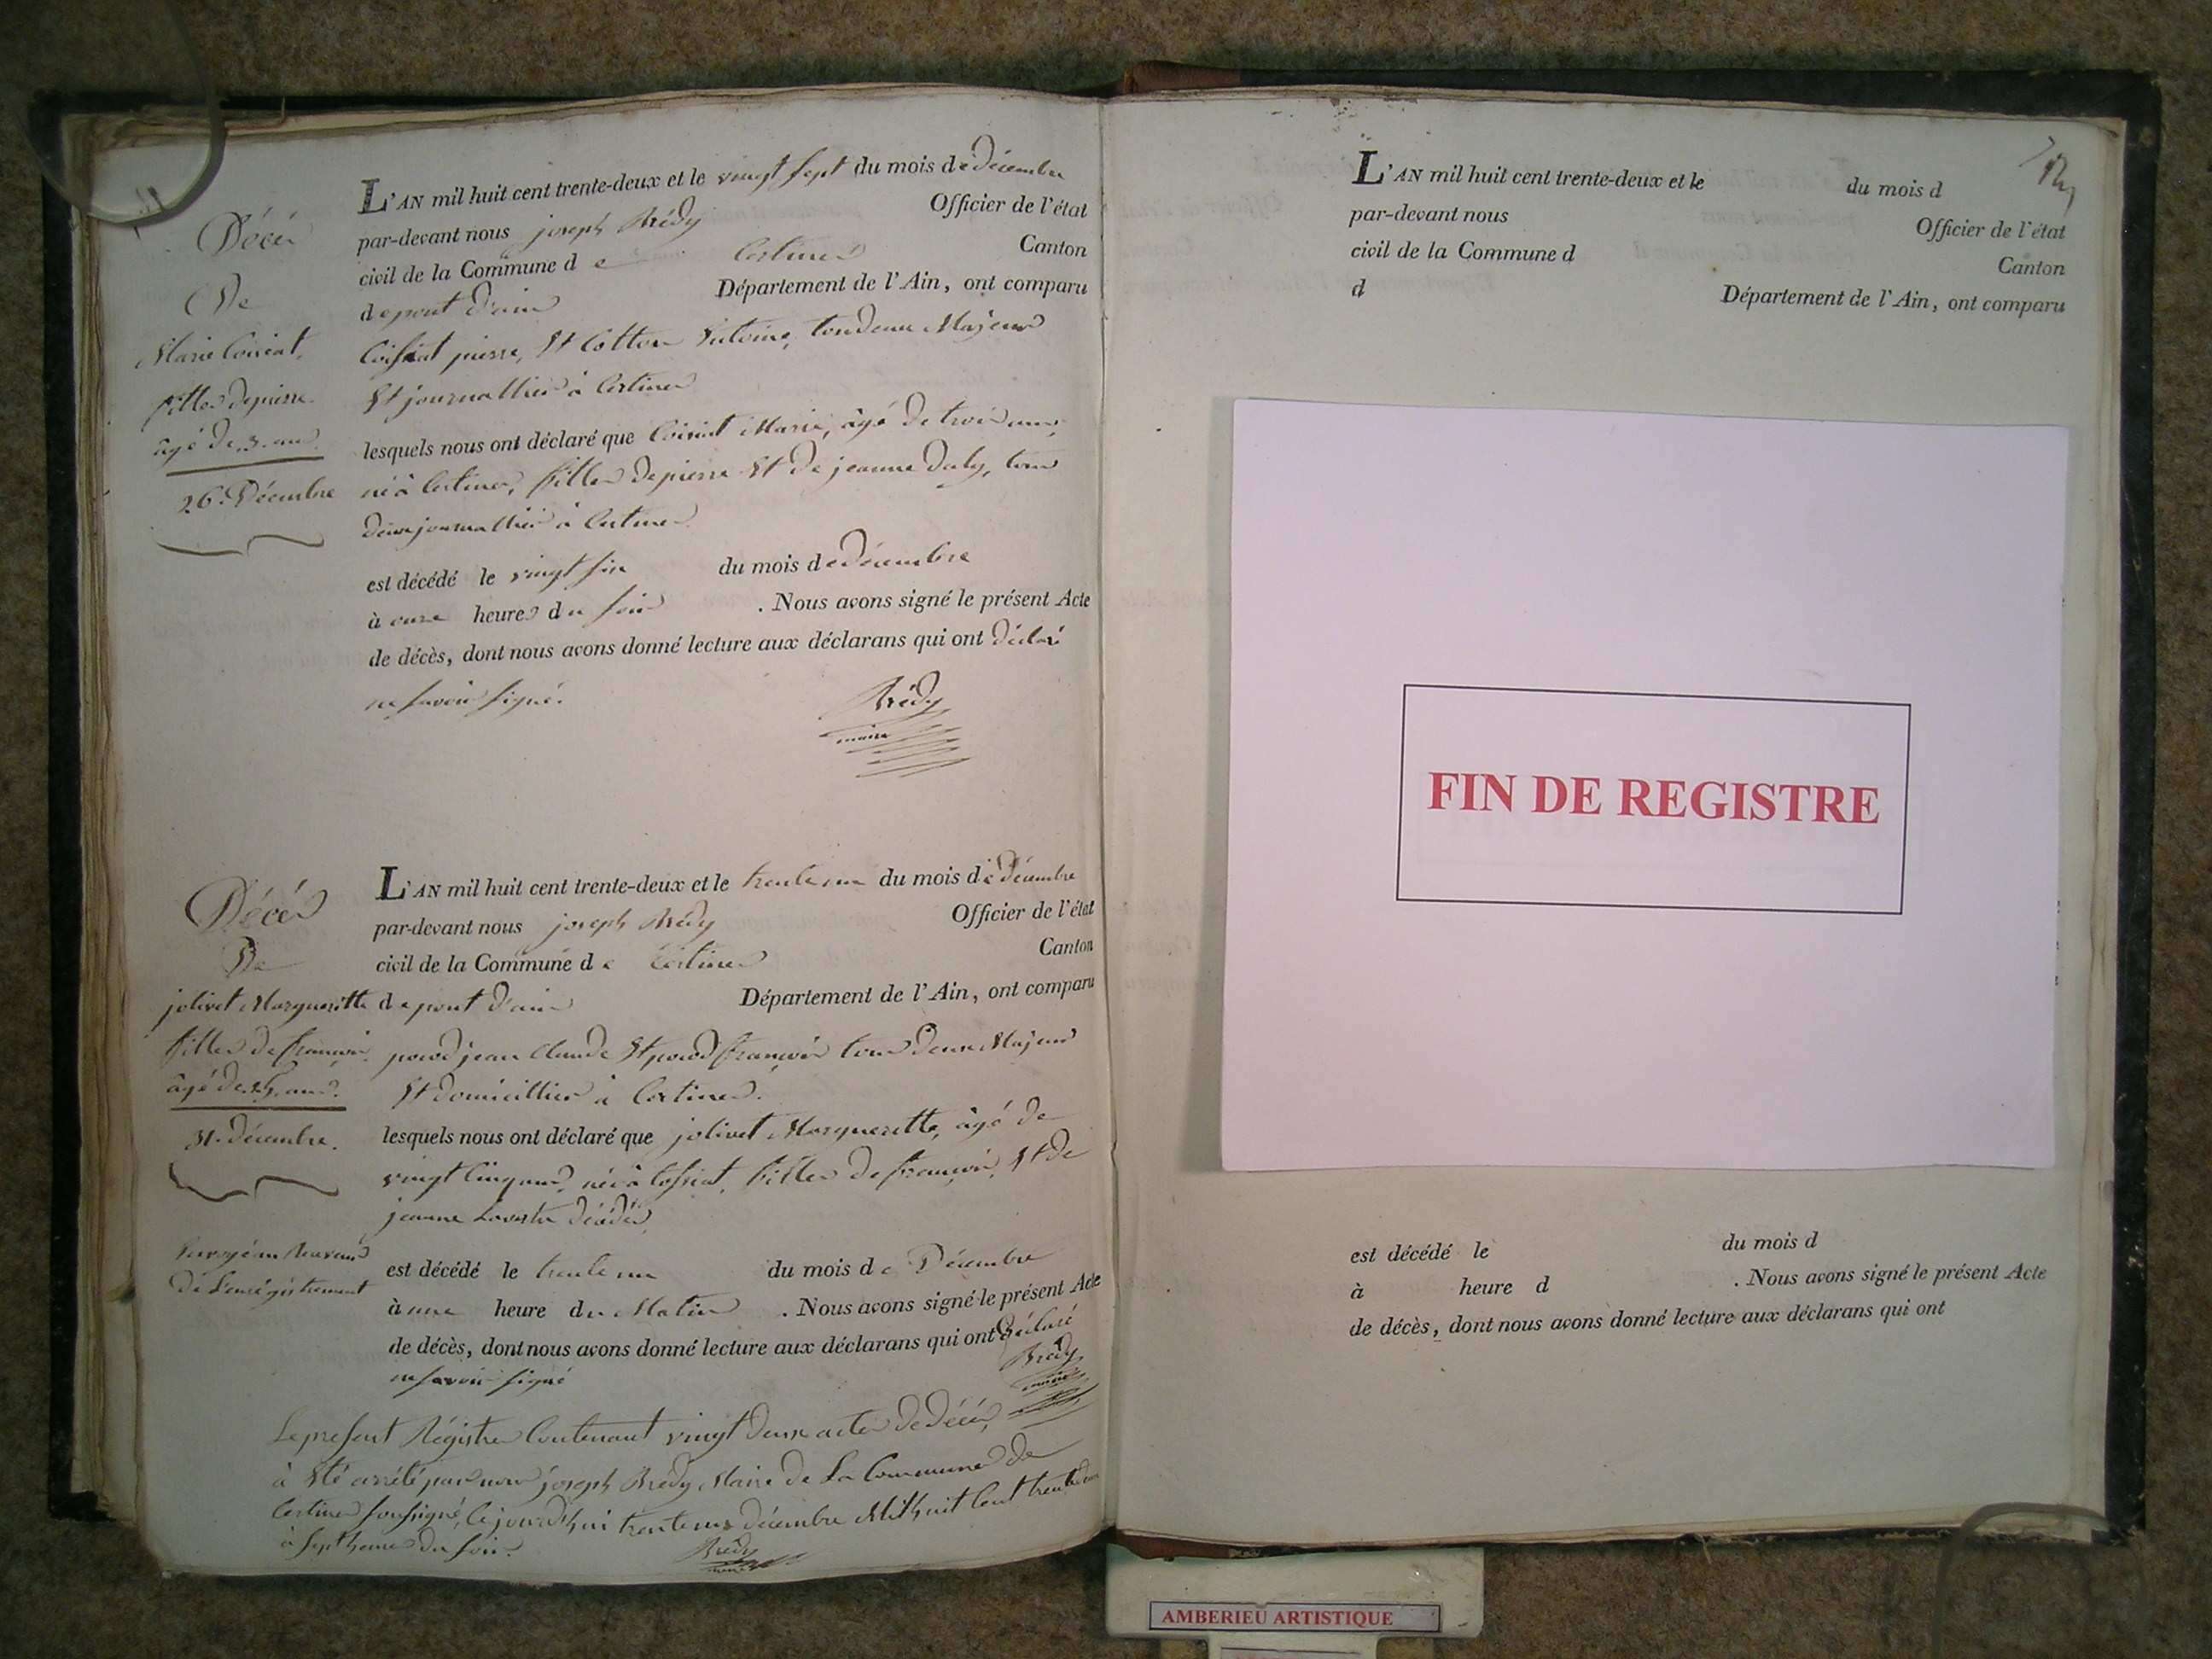 Décès
De
Marie Coissiat,
fille de pierre
âgé de 3. ans.
26. Décembre
L'AN mil huit cent trente-deux et le vingt sept du mois de décembre
par-devant nous joseph Brédy Officier de l'état
civil de la Commune de Certines Canton
de pont d'ain Département de l'Ain, ont comparu
Coissiat pierre, Et Cotton Antoine, tous deux Majeurs
Et journallier à Certines
lesquels nous ont déclaré que Coissiat Marie, âgé de trois ans,
né à Certines, fille de pierre Et de jeanne, tous
deux journallier à Certines
est décédé le vingt six du mois de décembre
à onze heures du soir . Nous avons signé le présent Acte
de décès, dont nous avons donné lecture aux déclarans qui ont déclaré
ne savoir signé.
Brédy
maire
Décès
De
jolivet Margueritte
fille de françois
âgé de 25. ans.
31. décembre.
Renvoyé au Receveur
de l'enregistrement
L'AN mil huit cent trente-deux et le trente un du mois de décembre
par-devant nous joseph Brédy Officier de l'état
civil de la Commune de Certines Canton
de pont d'ain Département de l'Ain, ont comparu
jean Claude Et françois tous deux Majeurs
Et domicillier à Certines.
lesquels nous ont déclaré que jolivet Marguerette, âgé de
vingt Cinq ans, né à Tossiat, fille de françois, Et de
jeanne décédés,
est décédé le trente un du mois de Décembre
à une heure du Matin . Nous avons signé le présent Acte
de décès, dont nous avons donné lecture aux déclarans qui ont déclaré
ne savoir signé
Brédy
maire
Le present Régistre Contenant vingt deux actes de décès,
à Eté arrêté par nous joseph Brédy Maire de La Commune de
Certines soussigné, Cejourd'hui trente un décembre Mil huit Cent trente deux
à sept heures du soir.
Brédy
maire
L'AN mil huit cent trente-deux et le du mois d
par-devant nous Officier de l'état
civil de la Commune d Canton
d Département de l'Ain, ont comparu
FIN DE REGISTRE
est décédé le du mois d
à heure d . Nous avons signé le présent Acte
de décès, dont nous avons donné lecture aux déclarans qui ont
AMBERIEU ARTISTIQUE